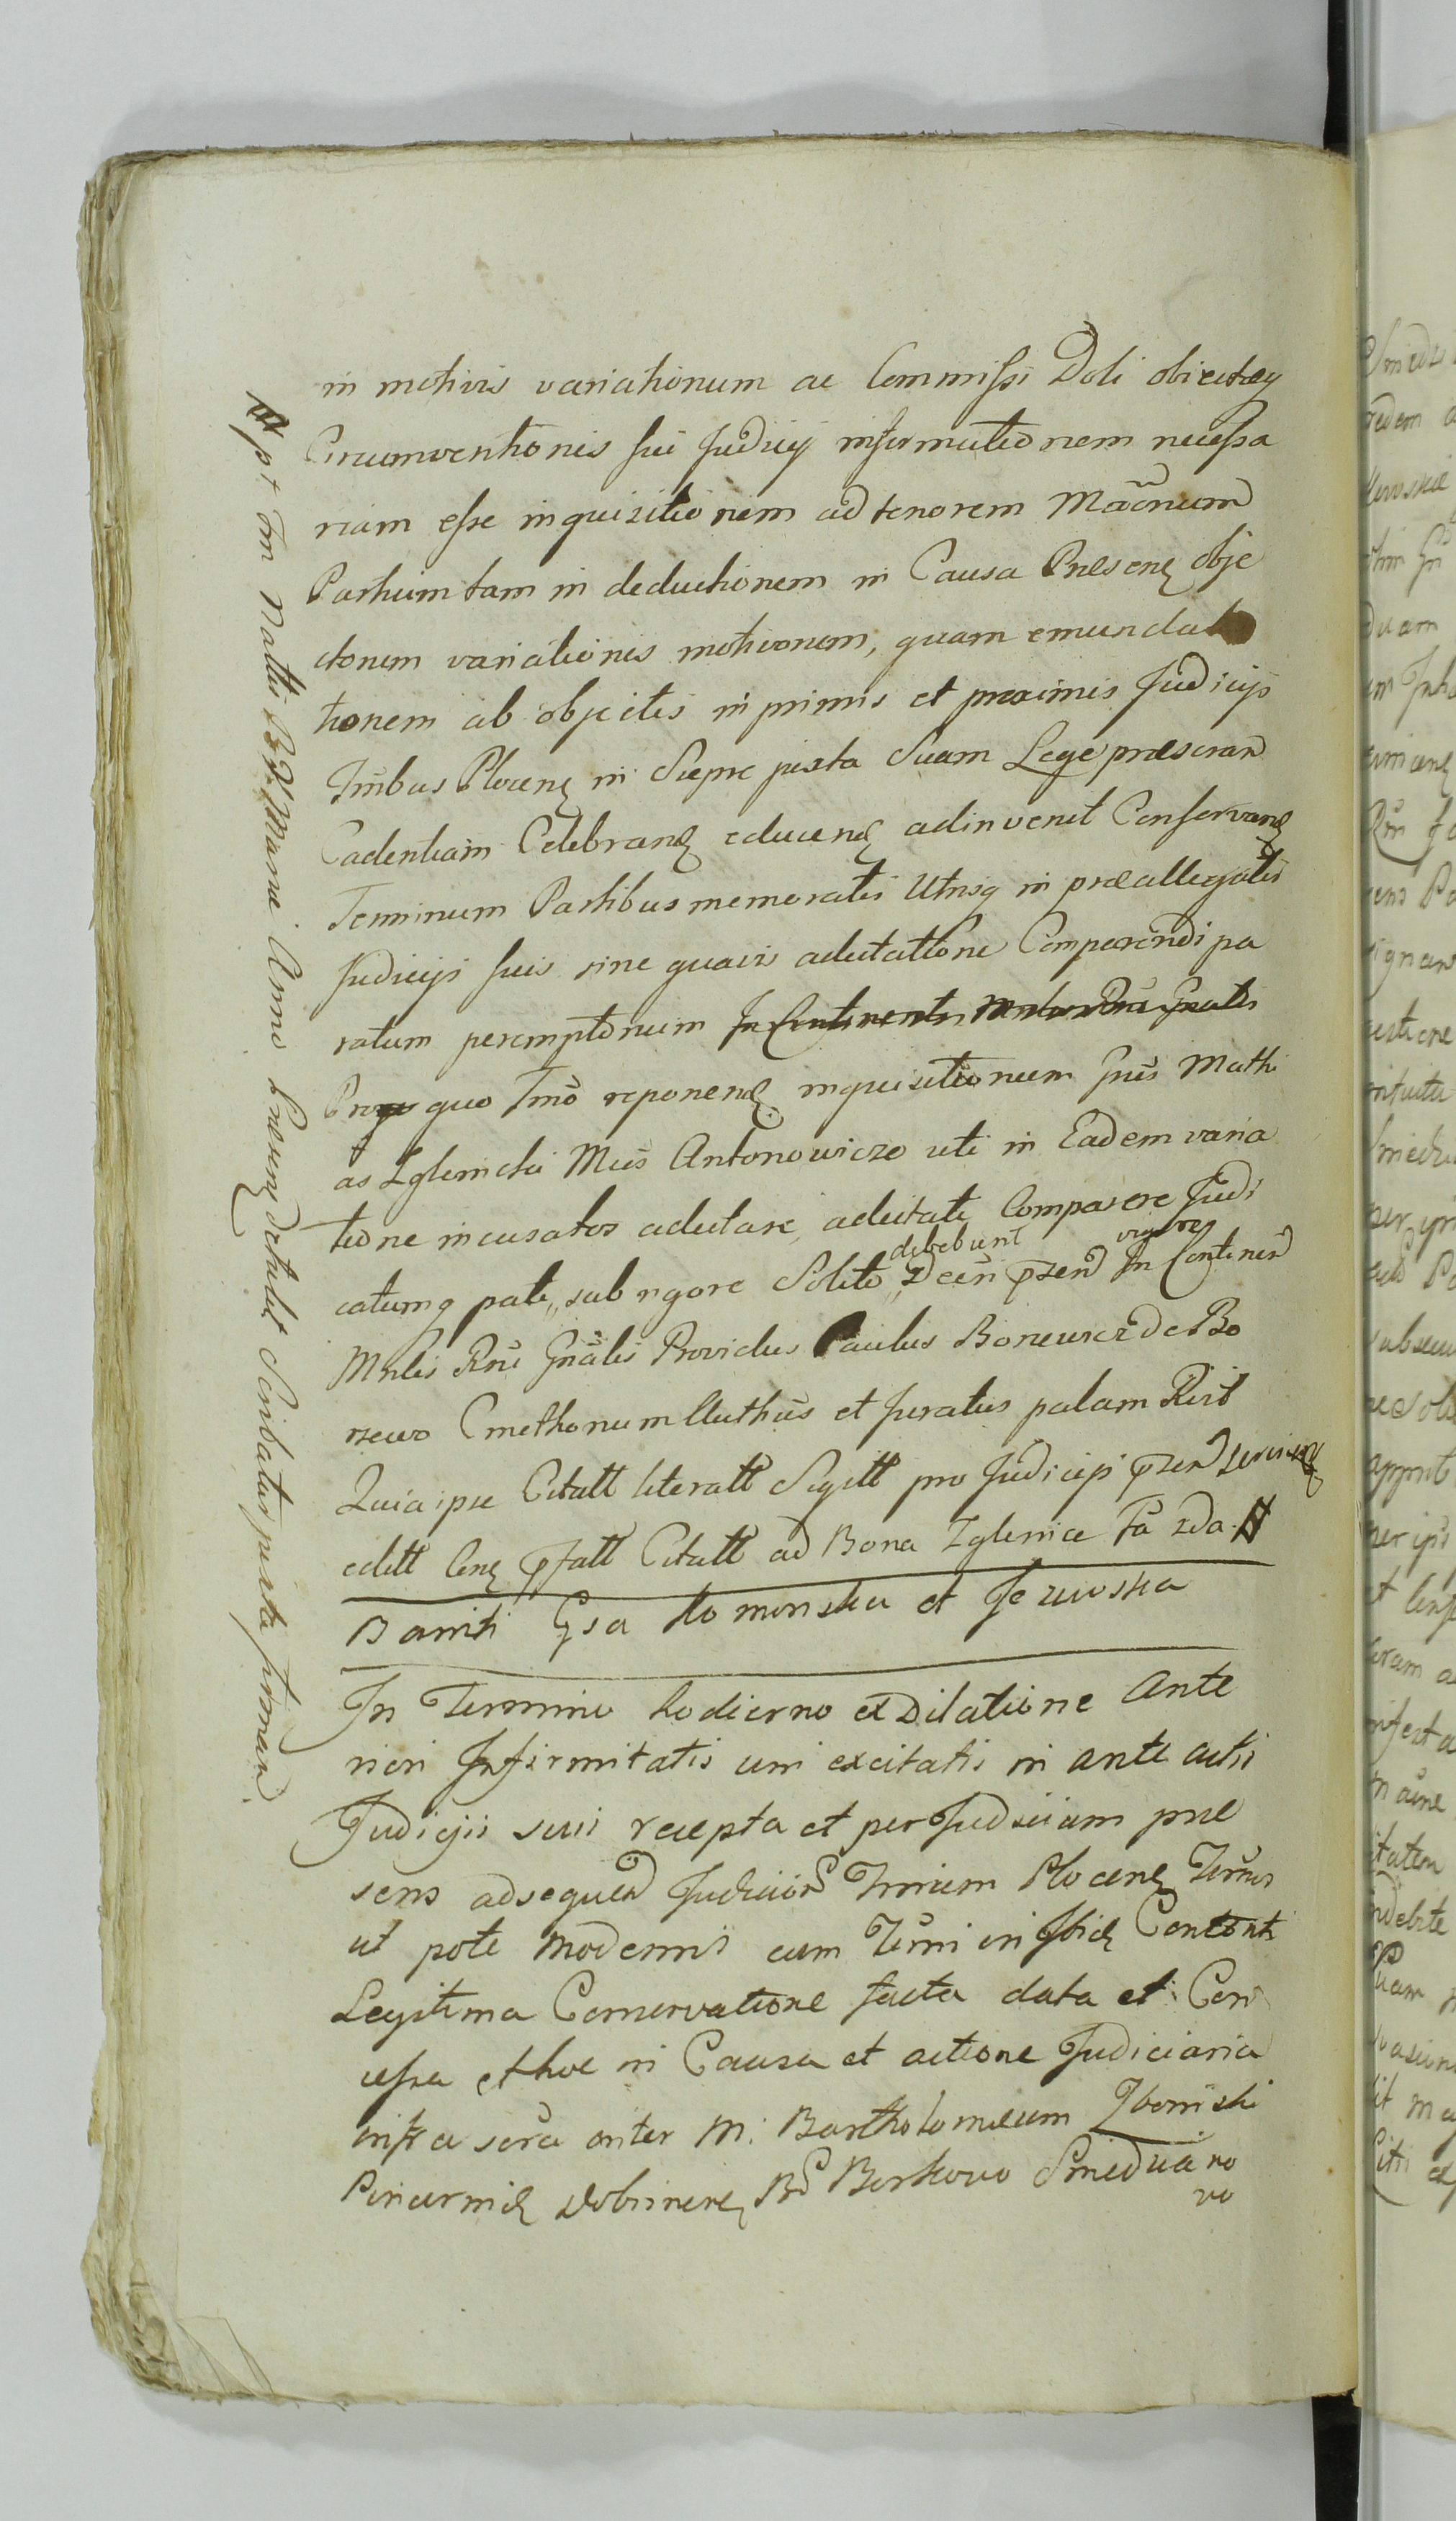 in motivis variationum ac Commissi Doli obiectaeq
Circumventionis sui Judicij informationem necessa
riam esse inquisitionem ad tenorem
Partium tam in deductionem in Causa Praesenę obje
ctorum variationis motivorum, quam emundat
tionem ab objectis in primis et proximis Judicijs
Tribus Plocenę in Siepre juxta Suam Lege praescran
Cadentiam Celebranę educenę adinvenit Conservanę
Terminum Partibus memoratis Utrisq in praeallegatis
Judicijs suis sine quavis adcitatione Comparendi pa
ratum peremptorium
Pro quo Tmo reponenę inquisitionem Gnis Mathi
as Zglenicki Mus Antonowiczo uti in Eadem varia
tione incusatos adcitare, adcitati Comparere Judi
catumq pati, sub rigore Solito,
debebunt
vigore
Decri pzend In Continen
Mnlis Rni Gnalis Providus Paulus Boneuicz de Bo
rzewo Cmethonum et Juratus palam Rrit
Quia ipse Citatt literatt Sigitt pro Judicijs pzend
editt Cenę pfatt Citatt ad Bona Zglenice
Baniti Gsa Komonska et Jezewska
In Termino hodierno ex Dilatione Ante
riori Infirmitatis uni excitatis in ante actis
Judicijs suis recepta et per Judicium prae
sens adsequend Judicior Trrium Plocenę Termis
ut pote modernis cum Termi in Ibidę Contenti
Legitima Conservatione facta data et Con
cessa et hoc in Causa et actione Judiciaria
infra scra inter M: Bartholomaeum Zboinski
Pincernię Dobrinenę Bd Borkowo
no
vo
pt Tm Nattis B. V. Mariae Anno Praesenę detulit Scribatus juxta